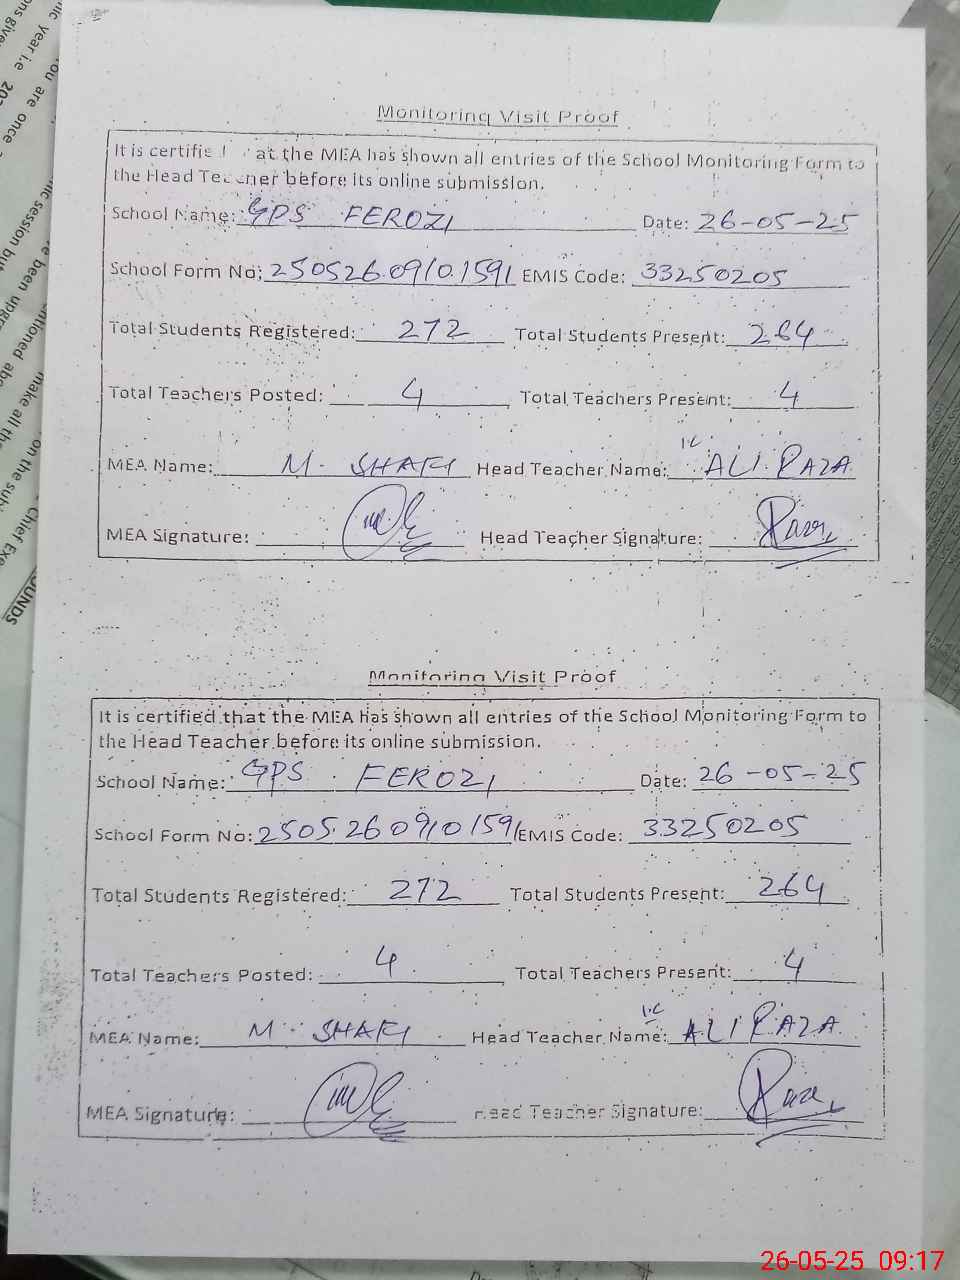 Monitoring Visit Proof
It is certifie at the MEA has shown all entries of the School Monitoring Form to
the Head Teacher before its online submission.
School Name: GPS FEROZI Date: 26-05-25
School Form No: 250526.0910.1591 EMIS Code: 33250205
Total Students Registered: 272 Total Students Present: 264
Total Teachers Posted: 4 Total Teachers Present: 4
MEA Name: M. SHAFI Head Teacher Name: I.C ALI RAZA
MEA Signature: Head Teacher Signature: Raza
Monitoring Visit Proof
It is certified that the MEA has shown all entries of the School Monitoring Form to
the Head Teacher before its online submission.
School Name: GPS FEROZI Date: 26-05-25
School Form No: 2505260910159 EMIS Code: 33250205
Total Students Registered: 272 Total Students Present: 264
Total Teachers Posted: 4 Total Teachers Present: 4
MEA Name: M. SHAFI Head Teacher Name: I.C ALI RAZA
MEA Signature: Head Teacher Signature: Raza
26-05-25 09:17